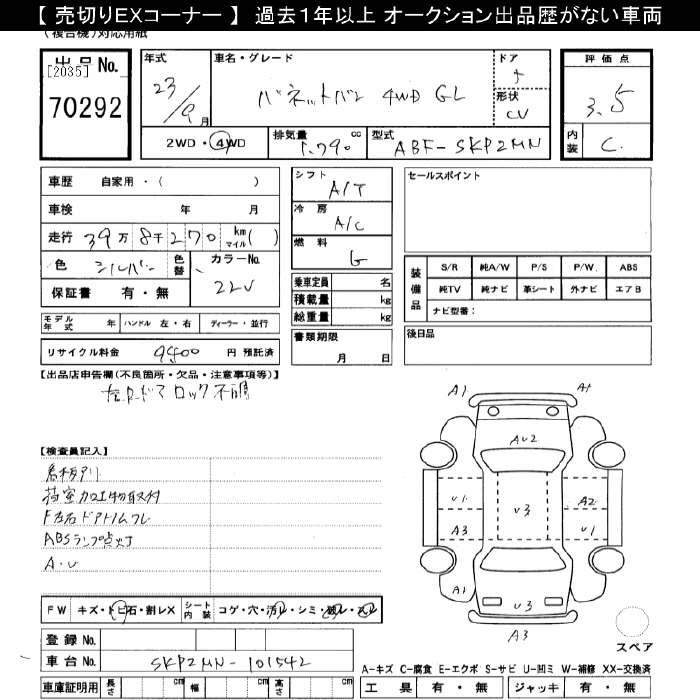 【 売切りEXコーナー 】 過去1年以上 オークション出品歴がない車両
(複合機)対応用紙
出品No.
[2035]
70292
年式
23/9月
車名・グレード
バネットバン 4WD GL
ドア
5
形状
CV
評価点
3.5
内装 C.
2WD・4WD
排気量 1.790 cc
型式 ABF-SKP2MN
車歴 自家用・( )
車検 年 月
走行 39万8千270 km マイル( )
色 シルバー
色替
カラーNo.
22V
保証書 有・無
モデル年式 年 ハンドル 左・右 ディーラー・並行
リサイクル料金 9400 円 預託済
シフト A/T
冷房 A/C
燃料 G
乗車定員 名
積載量 kg
総重量 kg
書類期限
月 日
セールスポイント
装備品
S/R 純A/W P/S P/W. ABS
純TV 純ナビ 革シート 外ナビ エアB
ナビ型番:
後日品
【出品店申告欄(不良箇所・欠品・注意事項等)】
ドア ロック不調
【検査員記入】
看板アリ
荷室加工物取付
F左右ドアトリムフレ
ABSランプ点灯
A・U
A1 A1
AU2
U1 U3 A2
A3 U1
A1 U3
A3
スペア
FW キズ・トビ石・割レX
シート内装 コゲ・穴・汚レ・シミ・破レ・スレ
登録No.
車台No. SKP2MN-101542
車庫証明用 長さ cm 幅 cm 高さ cm
A-キズ C-腐食 E-エクボ S-サビ U-凹ミ W-補修 XX-交換済
工具 有・無 ジャッキ 有・無